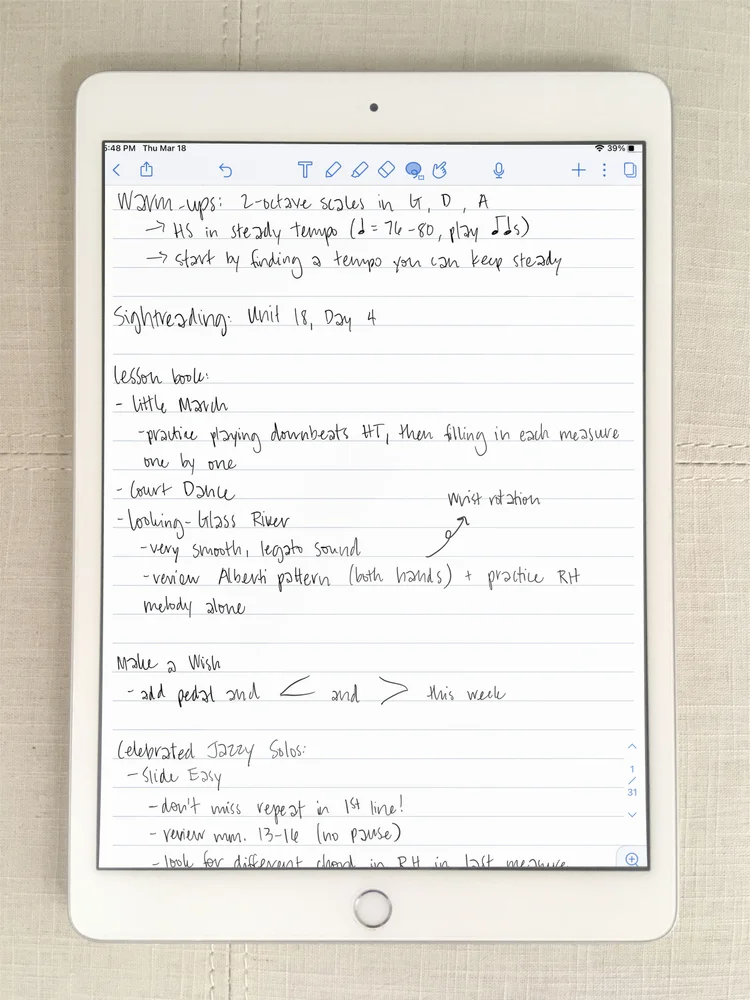 5:48 PM Thu Mar 18
39%
T
Warm-ups: 2-octave scales in G, D, A
→ HS in steady tempo (♩ = 76-80, play ♫♩s)
→ start by finding a tempo you can keep steady
Sightreading: Unit 18, Day 4
Lesson book:
- Little March
- practice playing downbeats HT, then filling in each measure
one by one
- Court Dance
wrist rotation
- Looking-Glass River
- very smooth, legato sound
- review Alberti pattern (both hands) + practice RH
melody alone
Make a Wish
- add pedal and < and > this week
Celebrated Jazzy Solos:
- Slide Easy
- don't miss repeat in 1st line!
- review mm. 13-16 (no pause)
- look for different chord in RH in last measure
1
/
31